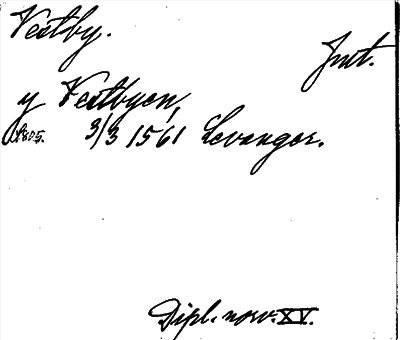 Vestby.
Jmt.
y Vestbyen,
s. 805. 3/3 1561 Levanger.
Dipl. norv. XV.